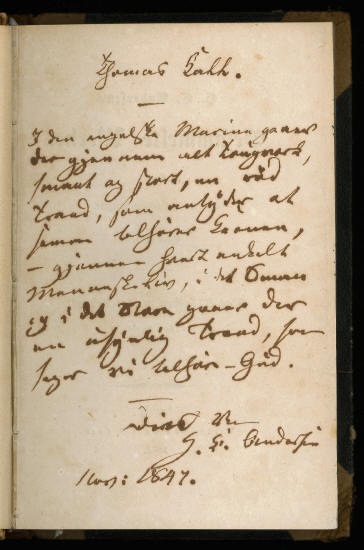 Thomas
I den engelske Marine gaaer
der gjennem alt Tougværk,
smaat og stort, en rød
Traad, som antyder at
samme tilhører Kronen,
– gjennem hvert enkelt
Menneskeliv, i det Smaae
og i det Store gaaer der
en usynlig Traad, som
siger vi tilhøre – Gud.
Din Ven
H. C. Andersen
Nov: 1847.